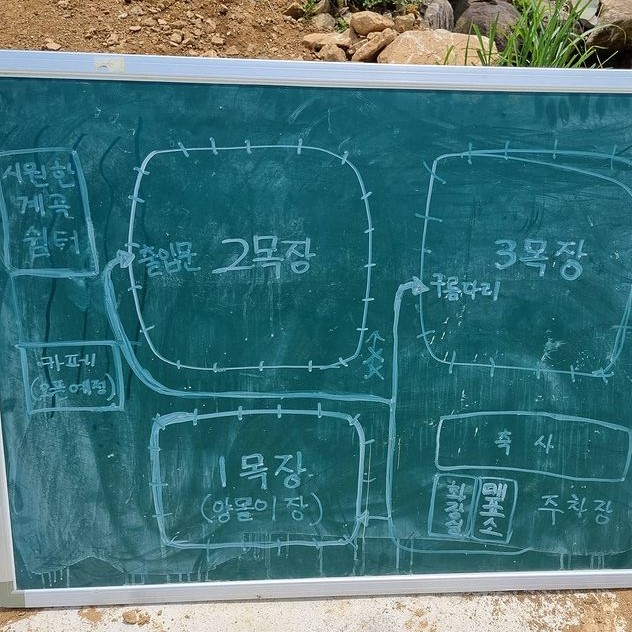 시원한
계곡
쉼터
출입문
2목장
3목장
구름다리
카페
(오픈예정)
1목장
(양몰이장)
축사
화장실
매표소
주차장